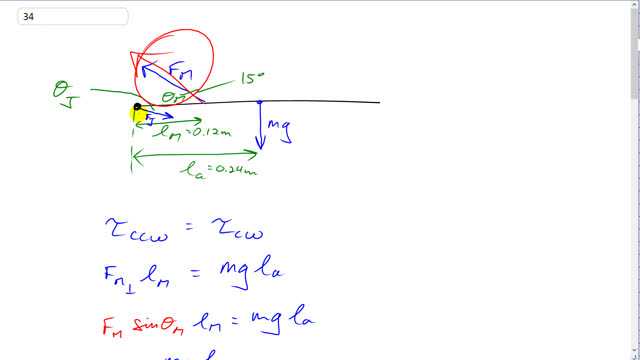 34
F_M
15°
θ_J
θ_M
F_J
l_M = 0.12m
mg
l_a = 0.24m
τ_ccw = τ_cw
F_M⊥ l_M = mg l_a
F_M sinθ_M l_M = mg l_a